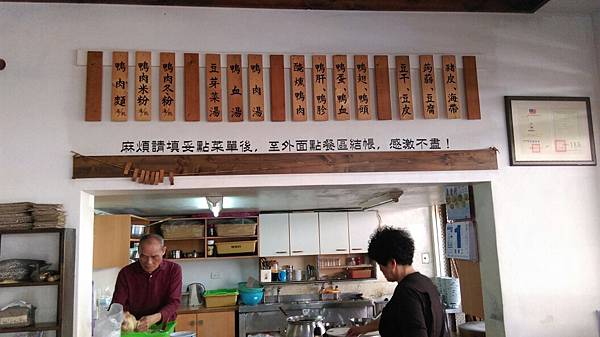 鴨肉麵
鴨肉米粉
鴨肉冬粉
豆芽菜湯
鴨血湯
鴨肉湯
醃燻鴨肉
鴨肝、鴨胗
鴨蛋、鴨血
鴨翅、鴨頭
豆干、豆皮
蒟蒻、豆腐
豬皮、海帶
麻煩請填妥點菜單後，至外面點餐區結帳，感激不盡！
1